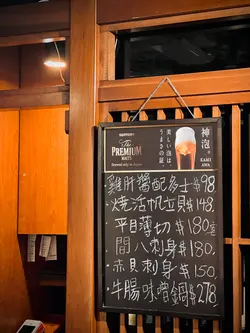 SUNTORY
The
PREMIUM
MALT'S
美しい泡は、
うまさの証。
神泡。
KAMI
AWA
・雞肝醬配多士$98
・燒活帆立貝$148
・平目薄切$180
・間八刺身$180
・赤貝刺身$150
・牛腸味噌鍋$278